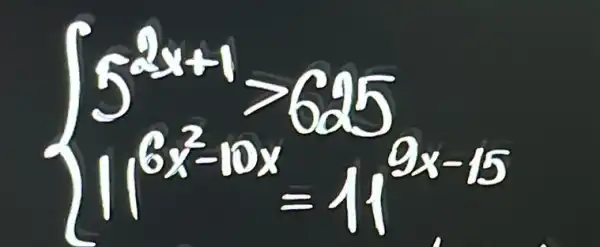 5^{2x+1} > 625
11^{6x²-10x} = 11^{9x-15}